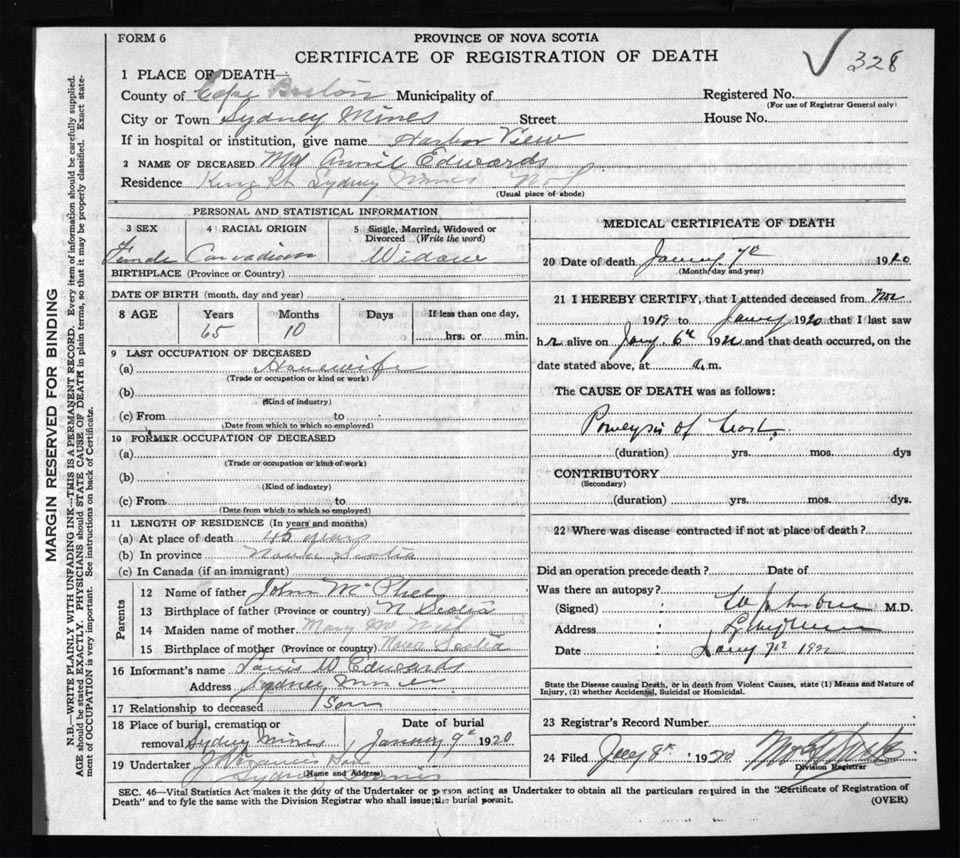 FORM 6
PROVINCE OF NOVA SCOTIA
CERTIFICATE OF REGISTRATION OF DEATH
328
1 PLACE OF DEATH—
County of Cape Breton Municipality of Registered No.
(For use of Registrar General only)
City or Town Sydney Mines Street House No.
If in hospital or institution, give name Harbor View
2 NAME OF DECEASED Annie Edwards
Residence King St Sydney Mines
(Usual place of abode)
MARGIN RESERVED FOR BINDING
N.B.—WRITE PLAINLY WITH UNFADING INK—THIS IS A PERMANENT RECORD. Every item of information should be carefully supplied.
AGE should be stated EXACTLY. PHYSICIANS should STATE CAUSE OF DEATH in plain terms, so that it may be properly classified. Exact state-
ment of OCCUPATION is very important. See instructions on back of Certificate.
PERSONAL AND STATISTICAL INFORMATION
3 SEX 4 RACIAL ORIGIN 5 Single, Married, Widowed or
Divorced (Write the word)
Female Canadian Widow
BIRTHPLACE (Province or Country)
DATE OF BIRTH (month, day and year)
8 AGE Years Months Days If less than one day,
65 10 hrs. or min.
9 LAST OCCUPATION OF DECEASED
(a) Housewife
(Trade or occupation or kind or work)
(b)
(Kind of industry)
(c) From to
(Date from which to which so employed)
10 FORMER OCCUPATION OF DECEASED
(a)
(Trade or occupation or kind of work)
(b)
(Kind of industry)
(c) From to
(Date from which to which so employed)
11 LENGTH OF RESIDENCE (In years and months)
(a) At place of death 45 years
(b) In province Nova Scotia
(c) In Canada (if an immigrant)
Parents
12 Name of father John McPhee
13 Birthplace of father (Province or country) N Scotia
14 Maiden name of mother Mary
15 Birthplace of mother (Province or country) Nova Scotia
16 Informant's name W Edwards
Address Sydney Mines
17 Relationship to deceased Son
18 Place of burial, cremation or Date of burial
removal Sydney Mines January 9th 1920
19 Undertaker
(Name and Address)
Sydney Mines
MEDICAL CERTIFICATE OF DEATH
20 Date of death 7th 1920
(Month/day and year)
21 I HEREBY CERTIFY, that I attended deceased from Nov
1919 to 1920 that I last saw
her alive on 6th and that death occurred, on the
date stated above, at a.m.
The CAUSE OF DEATH was as follows:
of heart
(duration) yrs. mos. dys
CONTRIBUTORY
(Secondary)
(duration) yrs. mos. dys.
22 Where was disease contracted if not at place of death?
Did an operation precede death? Date of
Was there an autopsy?
(Signed) M.D.
Address
Date 7th
State the Disease causing Death, or in death from Violent Causes, state (1) Means and Nature of
Injury, (2) whether Accidental, Suicidal or Homicidal.
23 Registrar's Record Number
24 Filed 8th 1920
Division Registrar
SEC. 46—Vital Statistics Act makes it the duty of the Undertaker or person acting as Undertaker to obtain all the particulars required in the "Certificate of Registration of
Death" and to fyle the same with the Division Registrar who shall issue the burial permit. (OVER)